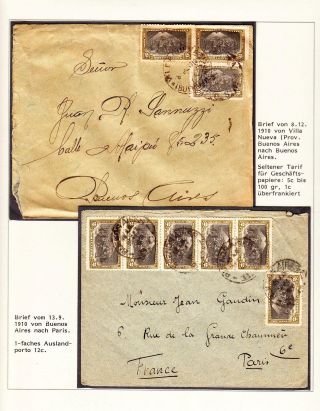 Señor
Juan R. Iannuzzi
Calle Maipú
235
Buenos Aires
Brief von 8.12.
1910 von Villa
Nueva (Prov.
Buenos Aires
nach Buenos
Aires.
Seltener Tarif
für Geschäfts-
papiere: 5c bis
100 gr, 1c
überfrankiert
Brief vom 13.9.
1910 von Buenos
Aires nach Paris.
1-faches Ausland-
porto 12c.
Monsieur Jean Gaudin
6 Rue de la Grande Chaumière
Paris 6e
France